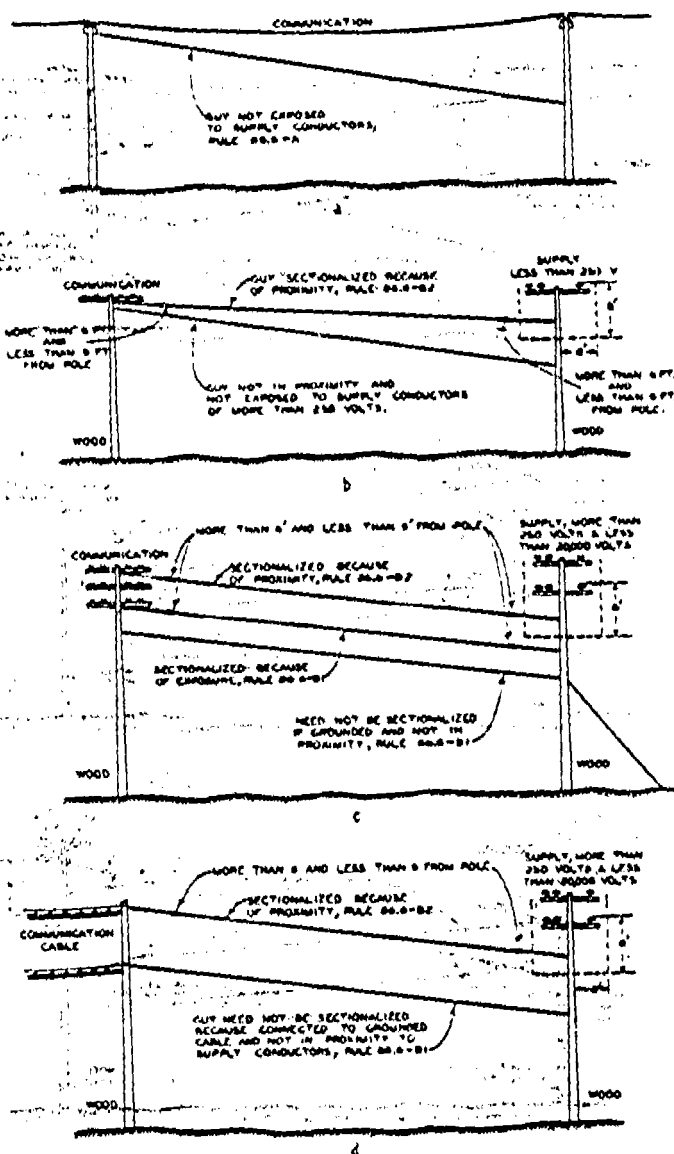 COMMUNICATION
GUY NOT EXPOSED
TO SUPPLY CONDUCTORS,
RULE 86.6-A
a
COMMUNICATION
GUY SECTIONALIZED BECAUSE
OF PROXIMITY, RULE 86.6-B2
SUPPLY
LESS THAN 250 V
MORE THAN
AND
LESS THAN 9 FT
FROM POLE
GUY NOT IN PROXIMITY AND
NOT EXPOSED TO SUPPLY CONDUCTORS
OF MORE THAN 250 VOLTS.
MORE THAN
AND
LESS THAN 9 FT
FROM POLE.
WOOD
WOOD
b
MORE THAN AND LESS THAN 9' FROM POLE
SUPPLY, MORE THAN
250 VOLTS & LESS
THAN 20,000 VOLTS
COMMUNICATION
SECTIONALIZED BECAUSE
OF PROXIMITY, RULE 86.6-B2
SECTIONALIZED BECAUSE
OF EXPOSURE, RULE 86.6-B1
NEED NOT BE SECTIONALIZED
IF GROUNDED AND NOT IN
PROXIMITY, RULE 86.6-B1
WOOD
WOOD
c
MORE THAN AND LESS THAN 9 FROM POLE
SUPPLY, MORE THAN
250 VOLTS & LESS
THAN 20,000 VOLTS
SECTIONALIZED BECAUSE
OF PROXIMITY, RULE 86.6-B2
COMMUNICATION
CABLE
GUY NEED NOT BE SECTIONALIZED
BECAUSE CONNECTED TO GROUNDED
CABLE AND NOT IN PROXIMITY TO
SUPPLY CONDUCTORS, RULE 86.6-B1
WOOD
WOOD
d